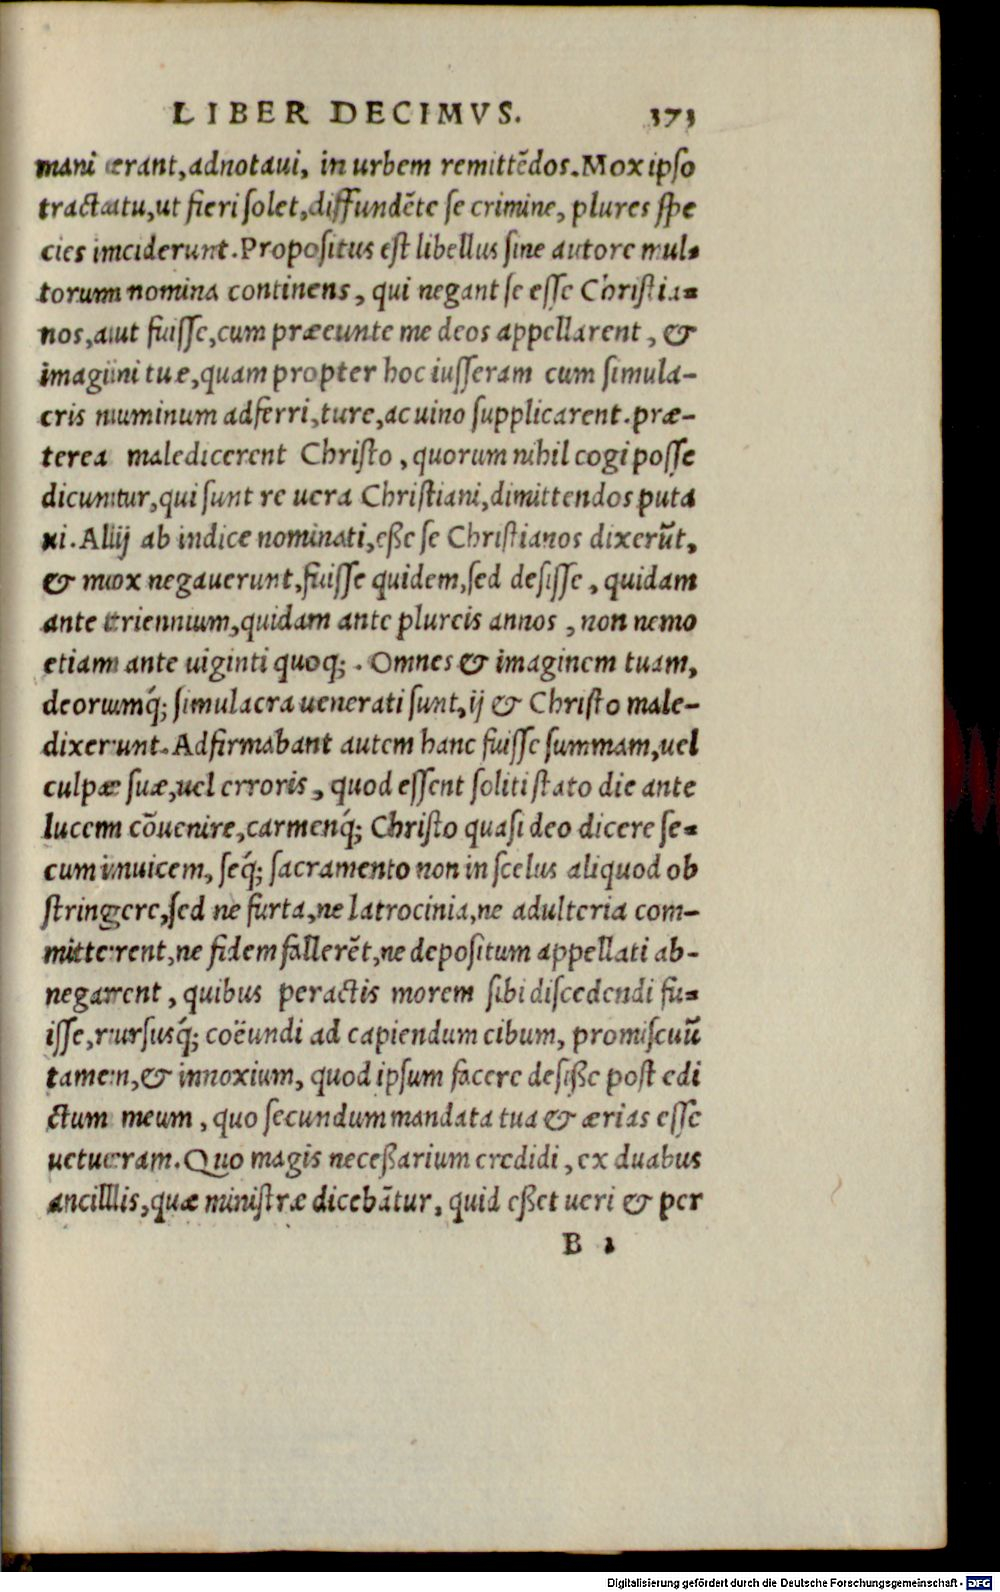 LIBER DECIMVS. 373
mani erant, adnotaui, in urbem remittēdos. Mox ipso
tractatu, ut fieri solet, diffundēte se crimine, plures spe
cies inciderunt. Propositus est libellus sine autore mul-
torum nomina continens, qui negant se esse Christia-
nos, aut fuisse, cum præeunte me deos appellarent, &
imagini tuæ, quam propter hoc iusseram cum simula-
cris numinum adferri, ture, ac uino supplicarent. præ-
terea maledicerent Christo, quorum nihil cogi posse
dicuntur, qui sunt re uera Christiani, dimittendos puta
ui. Alij ab indice nominati, eße se Christianos dixerūt,
& mox negauerunt, fuisse quidem, sed desisse, quidam
ante triennium, quidam ante plureis annos, non nemo
etiam ante uiginti quoq;. Omnes & imaginem tuam,
deorumq́; simulacra uenerati sunt, ij & Christo male-
dixerunt. Adfirmabant autem hanc fuisse summam, uel
culpæ suæ, uel erroris, quod essent soliti stato die ante
lucem cōuenire, carmenq́; Christo quasi deo dicere se-
cum inuicem, seq́; sacramento non in scelus aliquod ob
stringere, sed ne furta, ne latrocinia, ne adulteria com-
mitterent, ne fidem fallerēt, ne depositum appellati ab-
negarent, quibus peractis morem sibi discedendi fu-
isse, rursusq́; coëundi ad capiendum cibum, promiscuū
tamen, & innoxium, quod ipsum facere desiße post edi
ctum meum, quo secundum mandata tua & ærias esse
uetueram. Quo magis neceßarium credidi, ex duabus
ancillis, quæ ministræ dicebātur, quid eßet ueri & per
B 1
Digitalisierung gefördert durch die Deutsche Forschungsgemeinschaft - DFG